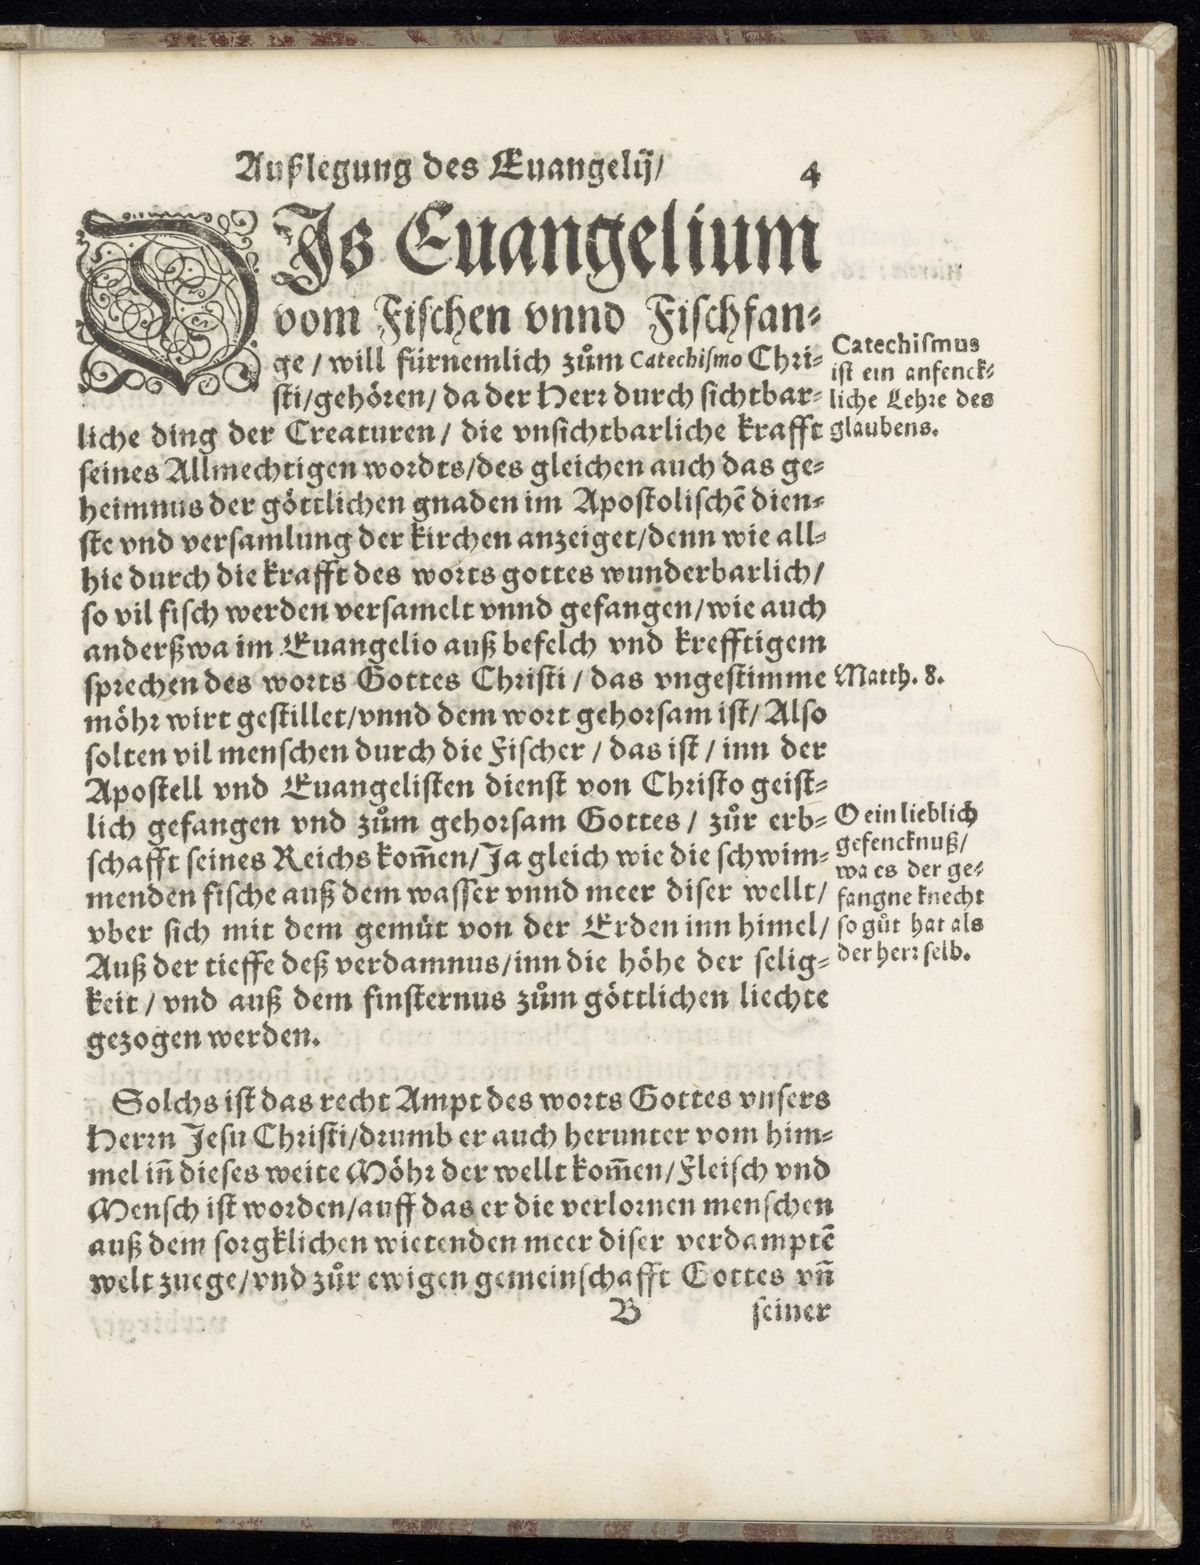 Außlegung des Euangelij/ 4
DIs Euangelium
vom Fischen vnnd Fischfan-
ge / will fürnemlich zům Catechismo Chri-
sti/gehören/ da der Herr durch sichtbar-
liche ding der Creaturen/ die vnsichtbarliche krafft
seines Allmechtigen wordts/des gleichen auch das ge-
heimnus der göttlichen gnaden im Apostolischē dien-
ste vnd versamlung der kirchen anzeiget/denn wie all-
hie durch die krafft des worts gottes wunderbarlich/
so vil fisch werden versamelt vnnd gefangen/wie auch
anderßwa im Euangelio auß befelch vnd krefftigem
sprechen des worts Gottes Christi / das vngestimme
möhr wirt gestillet/vnnd dem wort gehorsam ist/ Also
solten vil menschen durch die Fischer / das ist / inn der
Apostell vnd Euangelisten dienst von Christo geist-
lich gefangen vnd zům gehorsam Gottes / zůr erb-
schafft seines Reichs kom̄en/Ja gleich wie die schwim-
menden fische auß dem wasser vnnd meer diser wellt/
vber sich mit dem gemüt von der Erden inn himel/
Auß der tieffe deß verdamnus/inn die höhe der selig-
keit / vnd auß dem finsternus zům göttlichen liechte
gezogen werden.
Catechismus
ist ein anfenck-
liche Lehre des
glaubens.
Matth. 8.
O ein lieblich
gefencknuß/
wa es der ge-
fangne knecht
so gůt hat als
der herr selb.
Solchs ist das recht Ampt des worts Gottes vnsers
Herrn Jesu Christi/drumb er auch herunter vom him-
mel in̄ dieses weite Möhr der wellt kom̄en/Fleisch vnd
Mensch ist worden/auff das er die verlornen menschen
auß dem sorgklichen wietenden meer diser verdamptē
welt zuege/vnd zůr ewigen gemeinschafft Gottes vn̄
B seiner